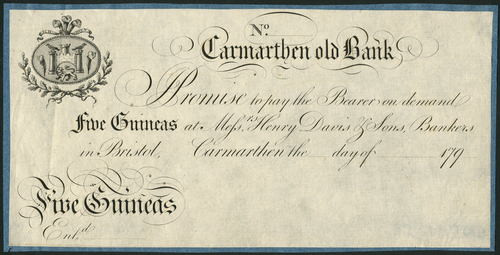 No.
Carmarthen old Bank
Promise to pay the Bearer on demand
Five Guineas at Mess.rs Henry Davis & Sons, Bankers
in Bristol, Carmarthen the day of 179
Five Guineas
Ent.d